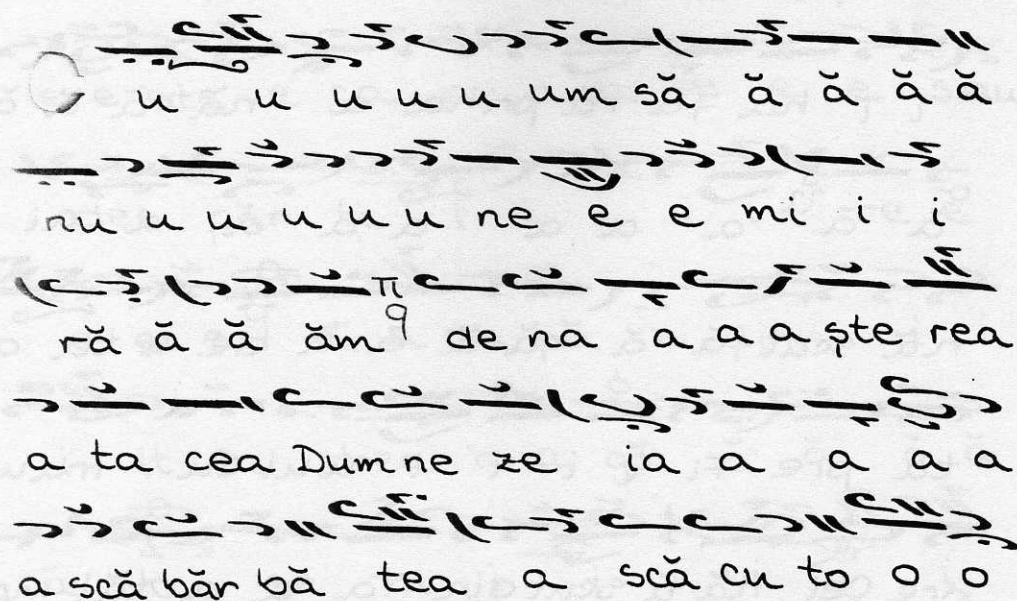 C u u u u u um să ă ă ă ă
nu u u u u u ne e e mi i i
π q
ră ă ă ăm de na a a a ște rea
a ta cea Dum ne ze ia a a a a
a scă băr bă tea a scă cu to o o